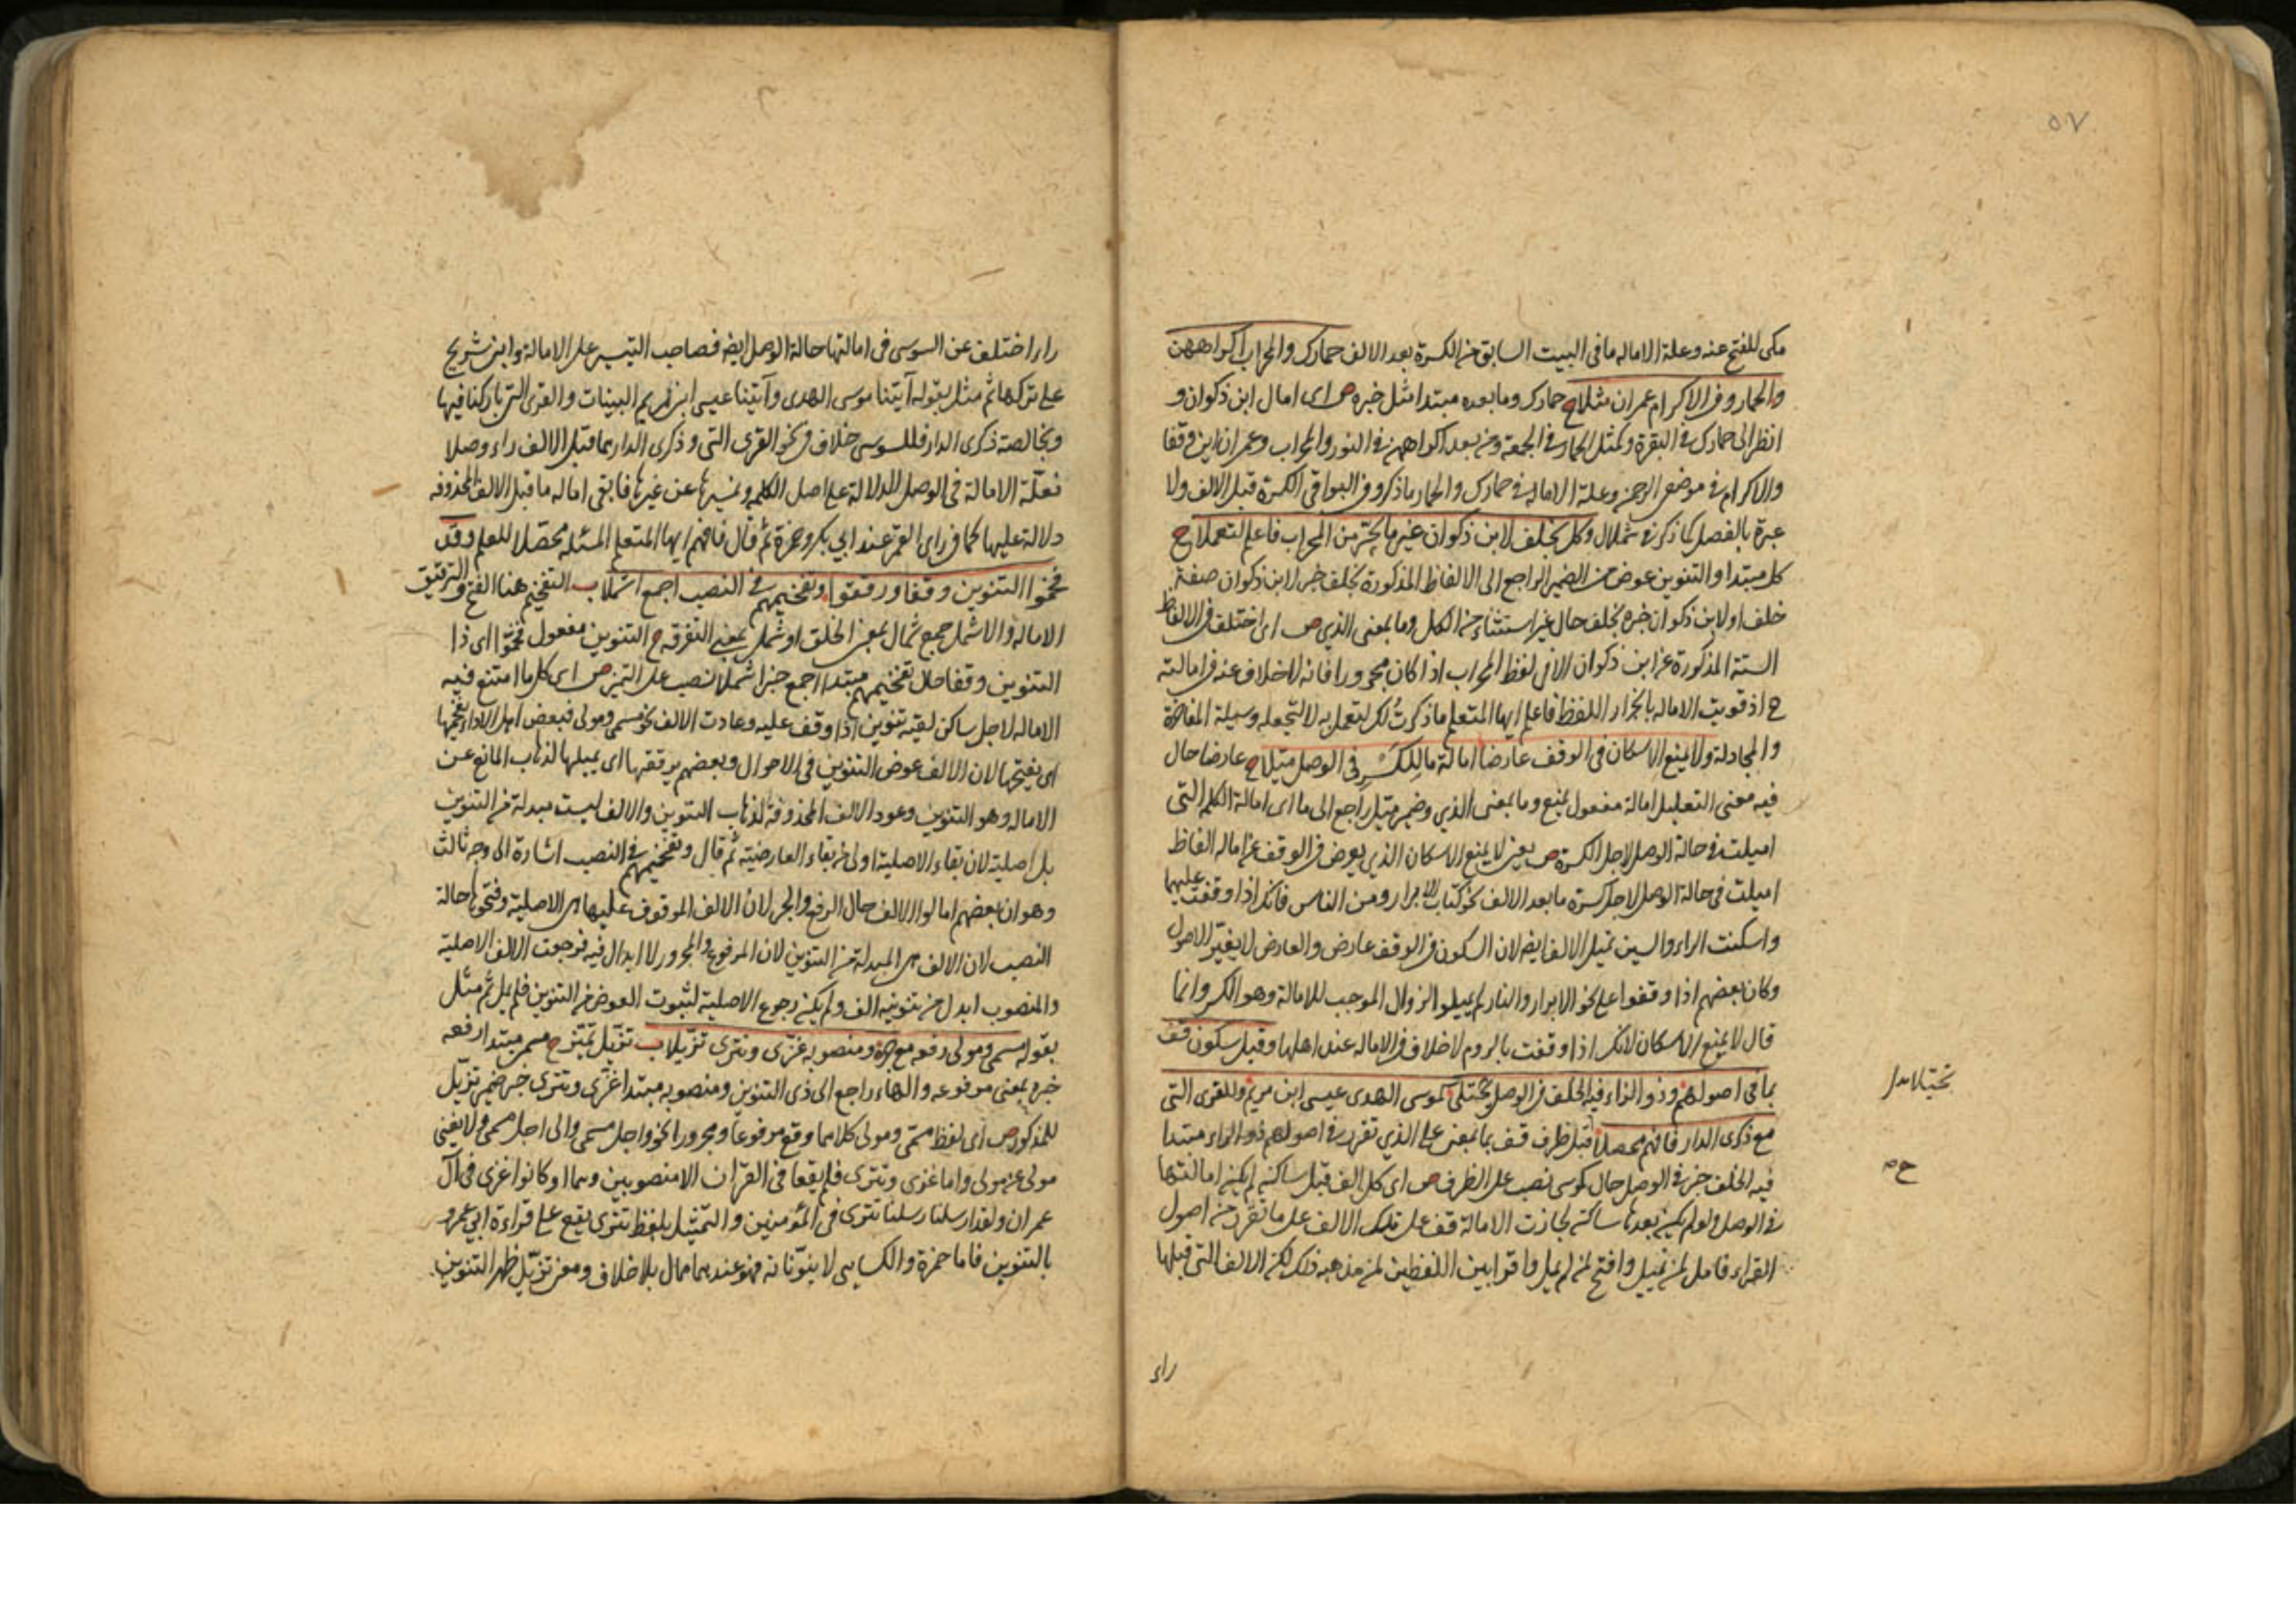 ٥٧
مكى للفتح عنه وعلة الاماله ما فى البيت السابق من الكسرة بعد الالف حمارك والمحراب اكراههن
والحمار وفى الاكرام عمران مثلا ح حمارك وما بعده مبتدا مثل خبره ص اى امال ابن ذكوان و
انظر الى حمارك فى البقرة وكمثل الحمار فى الجمعة ومن بعد اكراههن فى النور والمحراب وعمران اين وقعا
والاكرام فى موضعى الرحمن وعلة الامالة فى حمارك والحمار ما ذكر وفى البواقى الكسرة قبل الالف ولا
عبرة بالفصل كما ذكر فى شملال وكل بخلف لابن ذكوان غير ما يجر من المحراب فاعلم لتعملا ح
كل مبتدا والتنوين عوض من الضمير الراجع الى الالفاظ المذكورة بخلف خبر لابن ذكوان صفة
خلف او لابن ذكوان خبره بخلف حال غير استثناء من الكل وما بمعنى الذي ص اى اختلف فى الالفاظ
الستة المذكورة عن ابن ذكوان الا فى لفظ المحراب اذا كان مجرورا فانه لا خلاف عنه فى امالته
ح اذ قويت الاماله بانجرار اللفظ فاعلم ايها المتعلم ما ذكرت لك لتعمل به لا لتجعله وسيلة المفاخرة
والمجادلة ولا يمنع الاسكان فى الوقف عارضا امالة ما للكسر فى الوصل ميلا ح عارضا حال
فيه معنى التعليل امالة مفعول يمنع وما بمعنى الذي وضمير ميل راجع الى ما اى امالة الكلم التى
اميلت فى حالة الوصل لاجل الكسرة ص يعنى لا يمنع الاسكان الذي يعرض فى الوقف عن امالة الفاظ
اميلت فى حالة الوصل لاجل كسرة ما بعد الالف نحو كتاب الابرار ومن الناس فانك اذا وقفت عليهما
واسكنت الراء والسين تميل الالف ايضا لان السكون فى الوقف عارض والعارض لا يغير الاصول
وكان بعضهم اذا وقفوا على نحو الابرار والنار لم يميلوا لزوال الموجب للامالة وهو الكسر وانما
قال لا يمنع الاسكان لانك اذا وقفت بالروم لا خلاف فى الاماله عند اهلها وقبل سكون قف
بما فى اصولهم وذو الراء فيه الخلف فى الوصل يجتلى كموسى الهدى عيسى ابن مريم والقرى التى
مع ذكرى الدار فافهم محصلا قبل ظرف قف بما بمعنى على الذي تقرر فى اصولهم ذو الراء مبتدا
فيه الخلف خبر فى الوصل حال كموسى نصب على الظرف ص اى كل الف قبل ساكن لم يكن امالتها
فى الوصل ولو لم يكن بعدها ساكن لجازت الامالة قف على تلك الالف على ما تقرر من اصول
القراء فامل لمن تميل وافتح لمن لم يميل واقرا بين اللفظين لمن مذهبه ذلك لكن الالف التى قبلها
ح ص
راء
راء اختلف عن السوسى فى امالتها حالة الوصل ايضا فصاحب التيسير على الامالة وابن شريح
على تركها ثم مثل بقوله آتينا موسى الهدى وآتينا عيسى ابن مريم البينات والقرى التى باركنا فيها
وبخالصة ذكرى الدار فللسوسى خلاف فى نحو القرى التى وذكرى الدار مما قبل الالف راء وصلا
فعلة الامالة فى الوصل للدلالة على اصل الكلمه وتميزها عن غيرها فابقى اماله ما قبل الالف المحذوفه
دلالة عليها كما فى راى القمر عند ابي بكر وحمزة ثم قال فافهم ايها المتعلم المسئله محصلا للعلم وقف
فخموا التنوين وقفا ورققوا وتفخيمهم فى النصب اجمع اشملا ب التفخيم هنا الفتح والترقيق
الاماله والاشمل جمع شمال بمعنى الخلق او شمل بمعنى التفرقه ح التنوين مفعول فخموا اى ذا
التنوين وقفا حال تفخيمهم مبتدا اجمع خبر اشملا نصب على التميز ص اى كل ما امتنع فيه
الاماله لاجل ساكن لقيه تنوين اذا وقف عليه وعادت الالف نحو مسمى ومولى فبعض اهل الاداء يفخمها
اى يفتحها لان الالف عوض التنوين فى الاحوال وبعضهم يرققها اى يميلها لذهاب المانع عن
الاماله وهو التنوين وعود الالف المحذوفة لذهاب التنوين والالف ليست مبدلة من التنوين
بل اصلية لان بقاء الاصلية اولى من بقاء العارضية ثم قال وتفخيمهم فى النصب اشارة الى وجه ثالث
وهو ان بعضهم امالوا الالف حال الرفع والجر لان الالف الموقوف عليها هى الاصلية وفتحوها حالة
النصب لان الالف هى المبدلة من التنوين لان المرفوع والمجرور لا ابدال فيه فرجعت الالف الاصلية
والمنصوب ابدل من تنوينه الف ولم يكن رجوع الاصلية لثبوت العوض من التنوين فلم يمل ثم مثل
بقوله مسمى ومولى رفعه مع جره ومنصوبه غزى وتترى تزيلا ب تزيل تميز ح مسمى مبتدا رفعه
خبره بمعنى مرفوعه والهاء راجع الى ذى التنوين ومنصوبه مبتدا غزى وتترى خبر ضمير تزيل
للمذكور ص اى لفظ مسمى ومولى كلاهما وقع مرفوعا ومجرورا نحو واجل مسمى والى اجل مسمى ولا يغنى
مولى عن مولى واما غزى وتترى فلم يقعا فى القرآن الا منصوبين وهما او كانوا غزى فى آل
عمران ولقد ارسلنا رسلنا تترى فى المؤمنين والتمثيل بلفظ تترى يقع على قراءة ابي عمرو
بالتنوين فاما حمزة والكسايى لا ينونانه فهو عندهما ممال بلا خلاف ومعنى تزيل ظهر التنوين